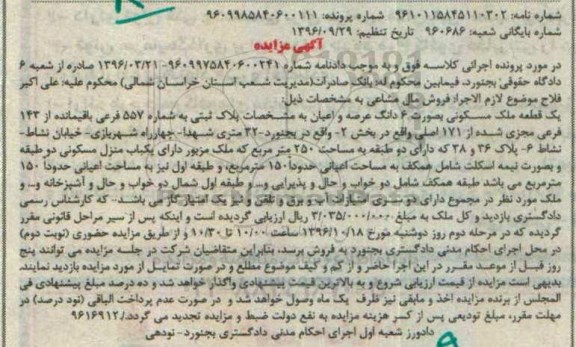 شماره نامه: ۹۶۱۰۱۱۵۸۴۵۱۱۰۳۰۲ شماره پرونده: ۹۶۰۹۹۸۵۸۴۰۶۰۰۱۱۱
شماره بایگانی شعبه: ۹۶۰۶۸۶ تاریخ تنظیم: ۱۳۹۶/۰۹/۲۹
آگهی مزایده
در مورد پرونده اجرائی کلاسه فوق و به موجب دادنامه شماره ۹۶۰۹۹۷۵۸۴۰۶۰۰۲۴۱-۱۳۹۶/۰۳/۲۱ صادره از شعبه ۶
دادگاه حقوقی بجنورد، فیمابین محکوم له: بانک صادرات(مدیریت شعب استان خراسان شمالی) محکوم علیه: علی اکبر
فلاح موضوع لازم الاجرا: فروش مال مشاعی به مشخصات ذیل:
یک قطعه ملک مسکونی بصورت ۶ دانگ عرصه و اعیان به مشخصات پلاک ثبتی به شماره ۵۵۷ فرعی باقیمانده از ۱۴۳
فرعی مجزی شده از ۱۷۱ اصلی واقع در بخش ۲- واقع در بجنورد-۳۲ متری شهدا- چهارراه شهربازی- خیابان نشاط-
نشاط ۶- پلاک ۳۶ و ۳۸ که دارای دو طبقه به مساحت ۲۵۰ متر مربع که ملک مزبور دارای یکباب منزل مسکونی دو طبقه
و بصورت نیمه اسکلت شامل همکف به مساحت اعیانی حدوداً ۱۵۰ مترمربع، و طبقه اول نیز به مساحت اعیانی حدوداً ۱۵۰
مترمربع می باشد طبقه همکف شامل دو خواب و حال و پذیرایی و... و طبقه اول شمال دو خواب و حال و آشپزخانه و... و
ملک مورد نظر در مجموع دارای دو سری امتیازات آب و برق و تلفن و نیز یک امتیاز گاز می باشد- که کارشناس رسمی
دادگستری بازدید و کل ملک به مبلغ ۳/۰۳۵/۰۰۰/۰۰۰ ریال ارزیابی گردیده است و اینکه پس از سیر مراحل قانونی مقرر
گردیده که در مرحله دوم روز دوشنبه مورخ ۱۳۹۶/۱۰/۱۸ ساعت ۱۰/۰۰ تا ۱۰/۳۰ و از طریق مزایده حضوری (نوبت دوم)
در محل اجرای احکام مدنی دادگستری بجنورد به فروش برسد، بنابراین متقاضیان شرکت در جلسه مزایده می توانند پنج
روز قبل از موعد مقرر در این اجرا حاضر و از کم و کیف موضوع مطلع و در صورت تمایل از مورد مزایده بازدید نمایند.
بدیهی است مزایده از قیمت ارزیابی شروع و به بالاترین قیمت پیشنهادی واگذار خواهد شد و ده درصد مبلغ پیشنهادی فی
المجلس از برنده مزایده اخذ و مابقی نیز ظرف یک ماه وصول خواهد شد و در صورت عدم پرداخت الباقی (نود درصد) در
مهلت مقرر، مبلغ تودیعی پس از کسر هزینه مزایده به نفع دولت ضبط و مزایده تجدید می گردد/. ۹۶۱۶۹۱۲
دادورز شعبه اول اجرای احکام مدنی دادگستری بجنورد- نودهی